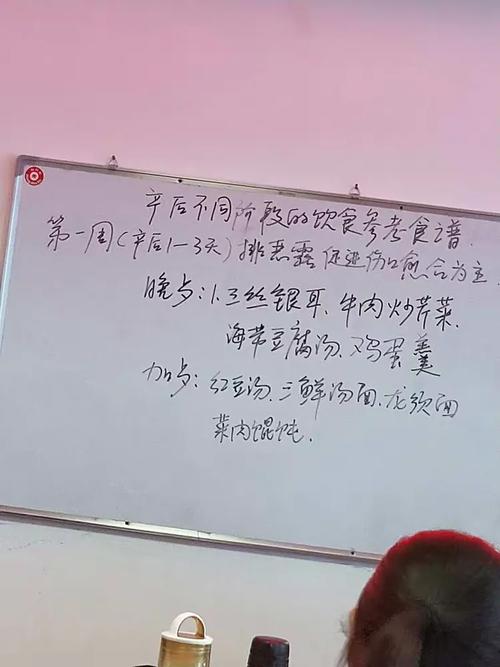 产后不同阶段的饮食参考食谱.
第一周(产后1-3天)排恶露 促进伤口愈合为主
晚点:1.三丝银耳、牛肉炒芹菜.
海带豆腐汤、鸡蛋羹
加点:红豆汤、三鲜汤面、龙须面
菜肉馄饨.